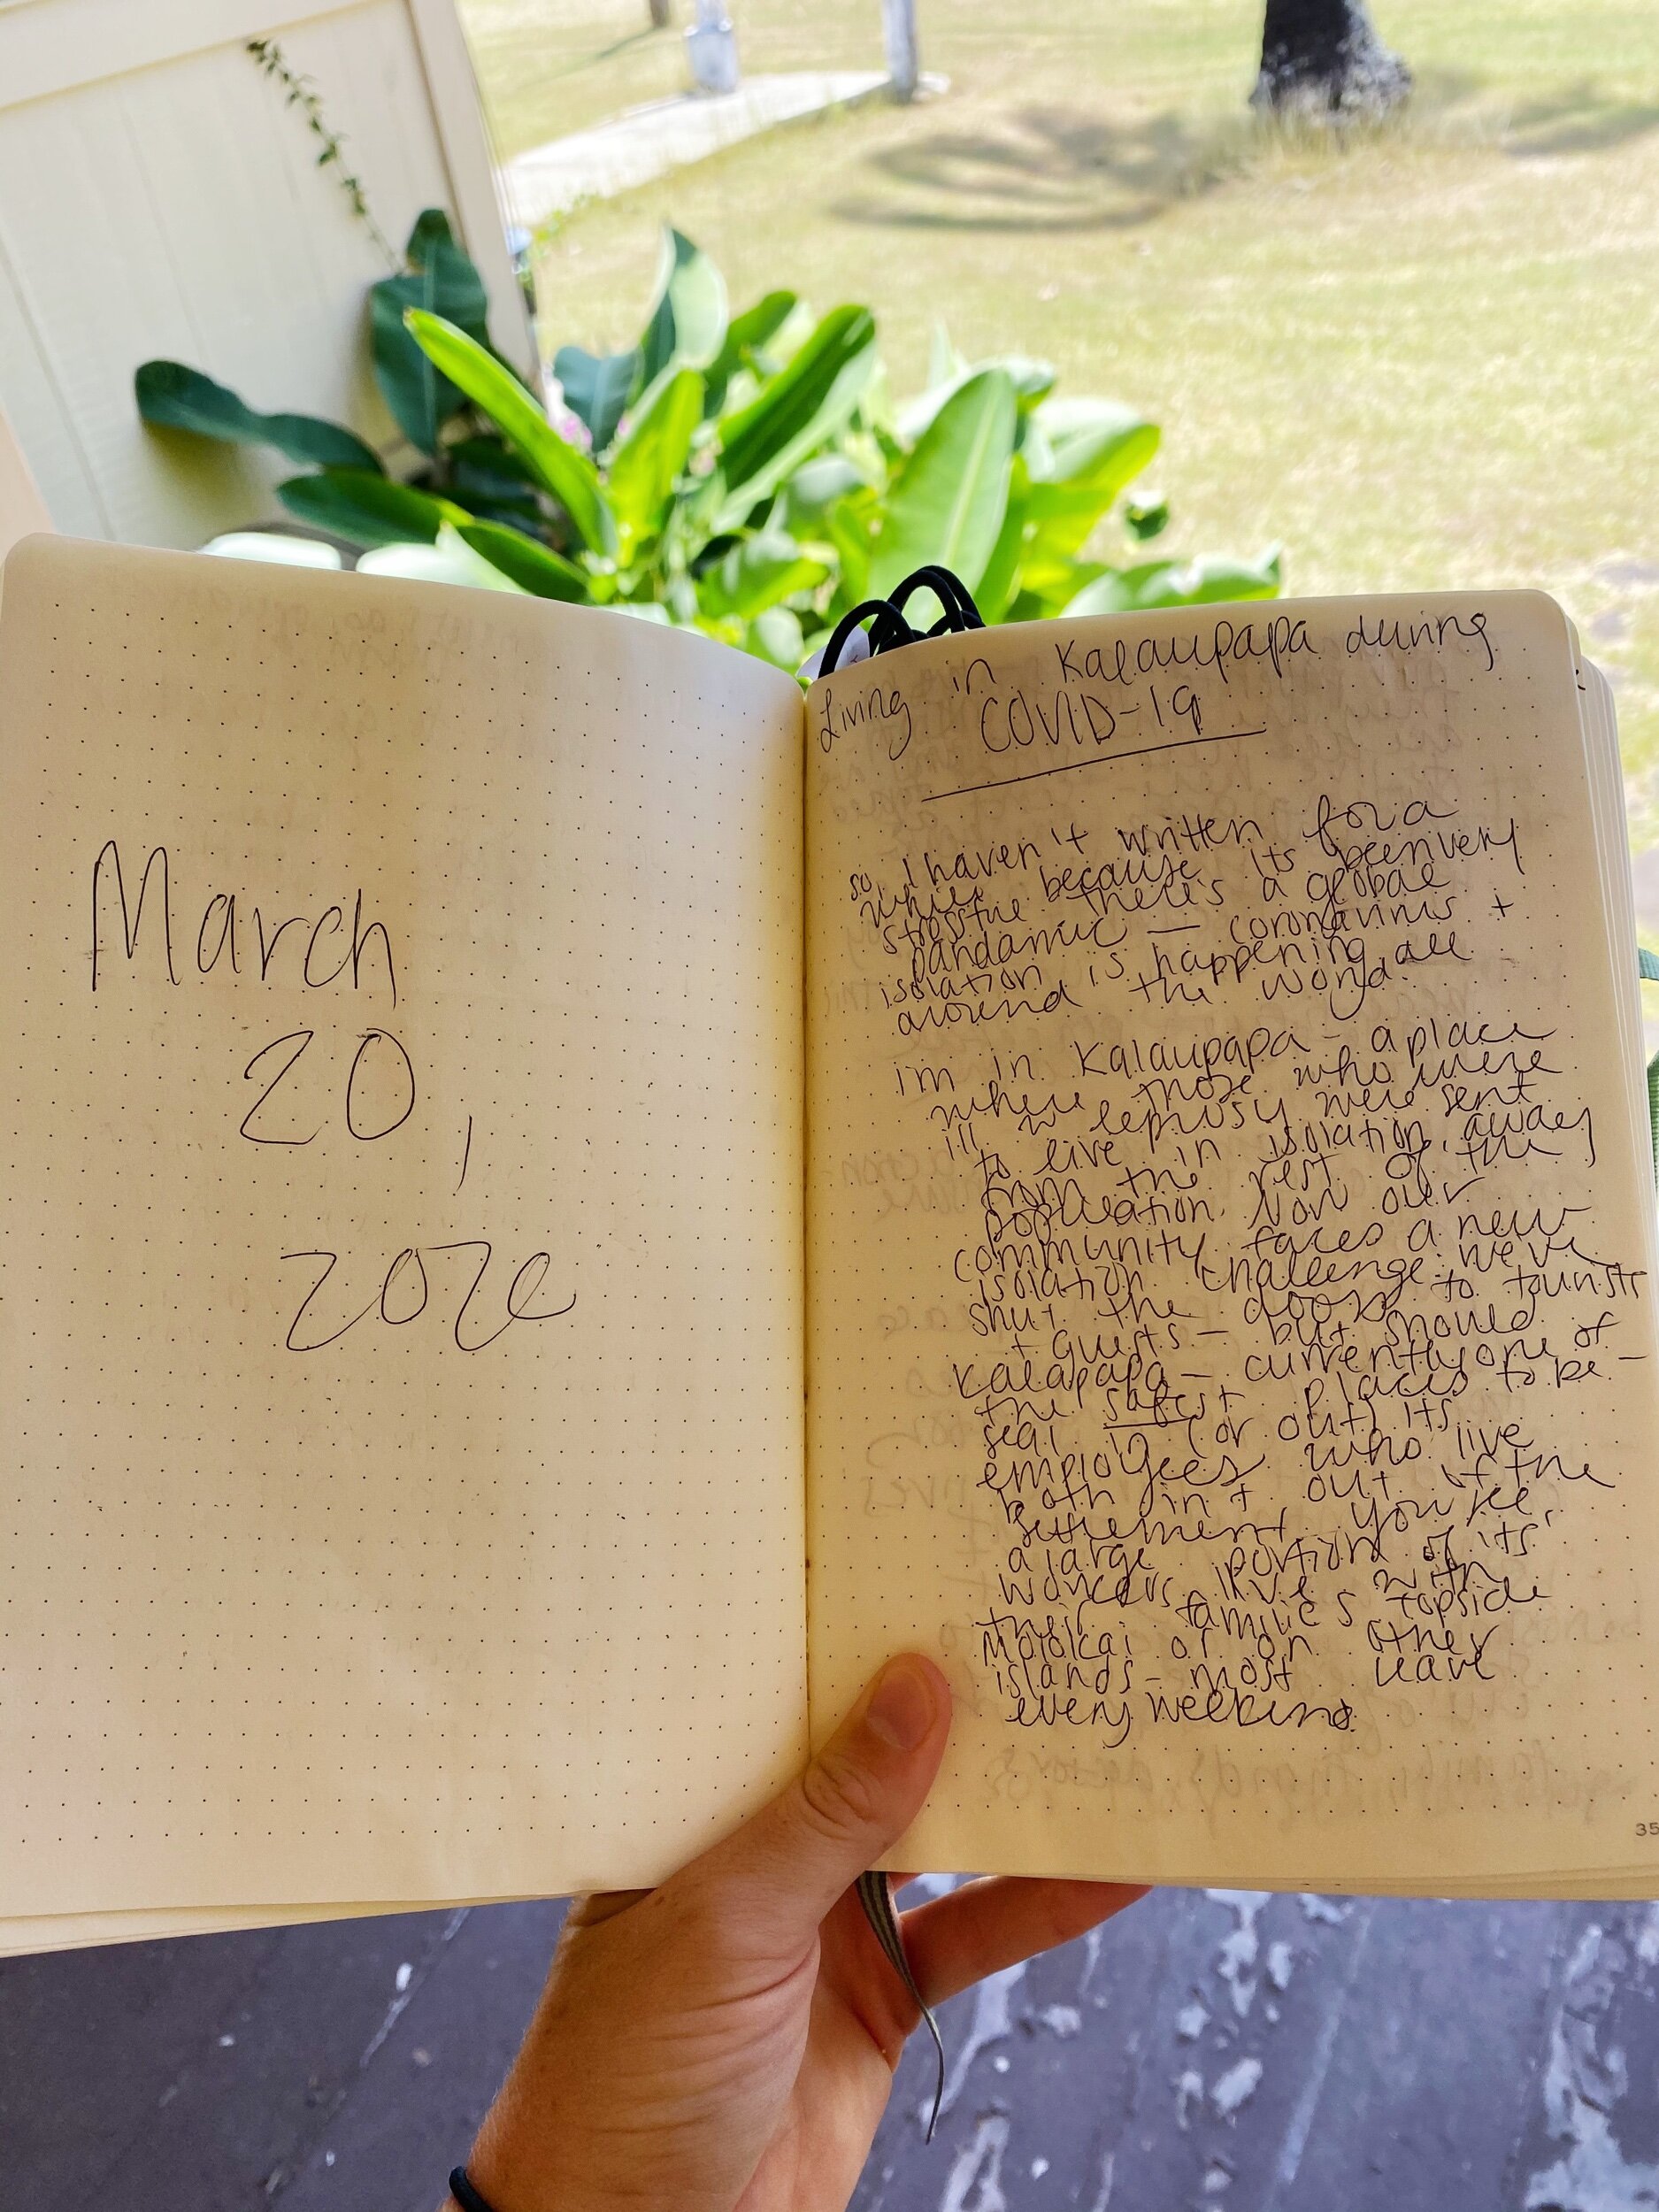 March
20,
2020
Living in Kalaupapa during
COVID-19
so, I haven't written for a
while because its been very
stressful there's a global
pandamic — coronavirus +
isolation is happening all
around the world.
i'm in Kalaupapa - a place
where those who were
ill w leprosy were sent
to live in isolation, away
from the rest of the
population. Now our
community faces a new
isolation challenge. we've
shut the doors to tourists
+ guests — but should
Kalapapa — currently one of
the safest places to be —
seal in (or out) its
employees who live
both in + out of the
settlement. You see,
a large portion of its'
workers live with
their families topside
Molokai or on other
islands - most leave
every weekend.
35